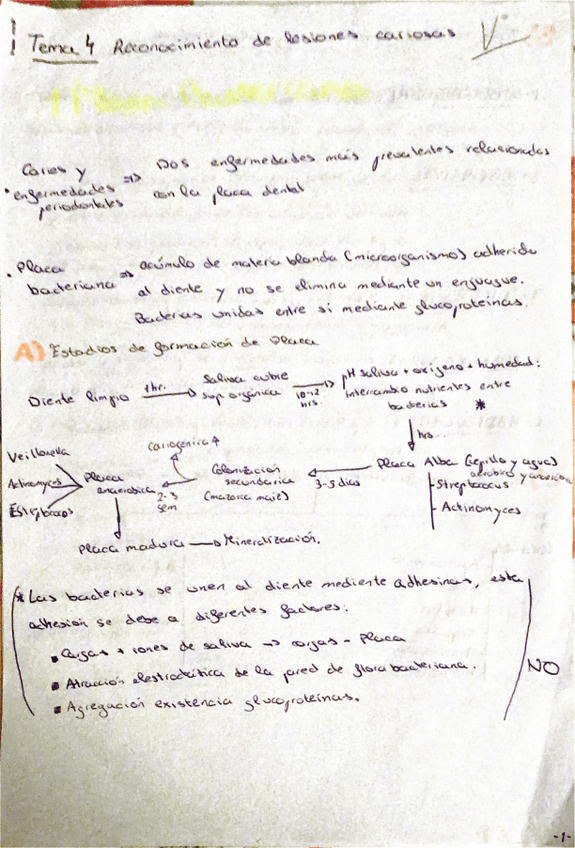 ! Tema 4 Reconocimiento de lesiones cariosas
Caries y
• enfermedades
periodontales
⇒ Dos enfermedades más prevalentes relacionadas
con la placa dental
• Placa
bacteriana
⇒ acúmulo de materia blanda (microorganismo) adherida
al diente y no se elimina mediante un enjuague.
Bacterias unidas entre sí mediante glucoproteínas.
A) Estadios de formación de Placa
Diente limpio
1 hr.
→ Saliva cubre
sup. orgánica
10-12
hrs.
⇒ pH saliva + oxígeno + humedad:
intercambio nutrientes entre
bacterias *
↓ hrs...
Placa Alba (tejido y agua)
aerobios y anaerobios
- Streptococcus
- Actinomyces
← 3-5 días
Colonización
secundaria
(mazorca maíz)
Cariogénica
← 2-3
sem
Placa
anaerobica
Veillonella
Actinomyces
↓
Placa madura → Mineralización.
* Las bacterias se unen al diente mediante adhesinas, esta
adhesión se debe a diferentes factores:
▪ Cargas + iones de saliva → cargas - placa
▪ Atracción electrostática de la pared de flora bacteriana.
▪ Agregación existencia glucoproteínas.
NO
-1-